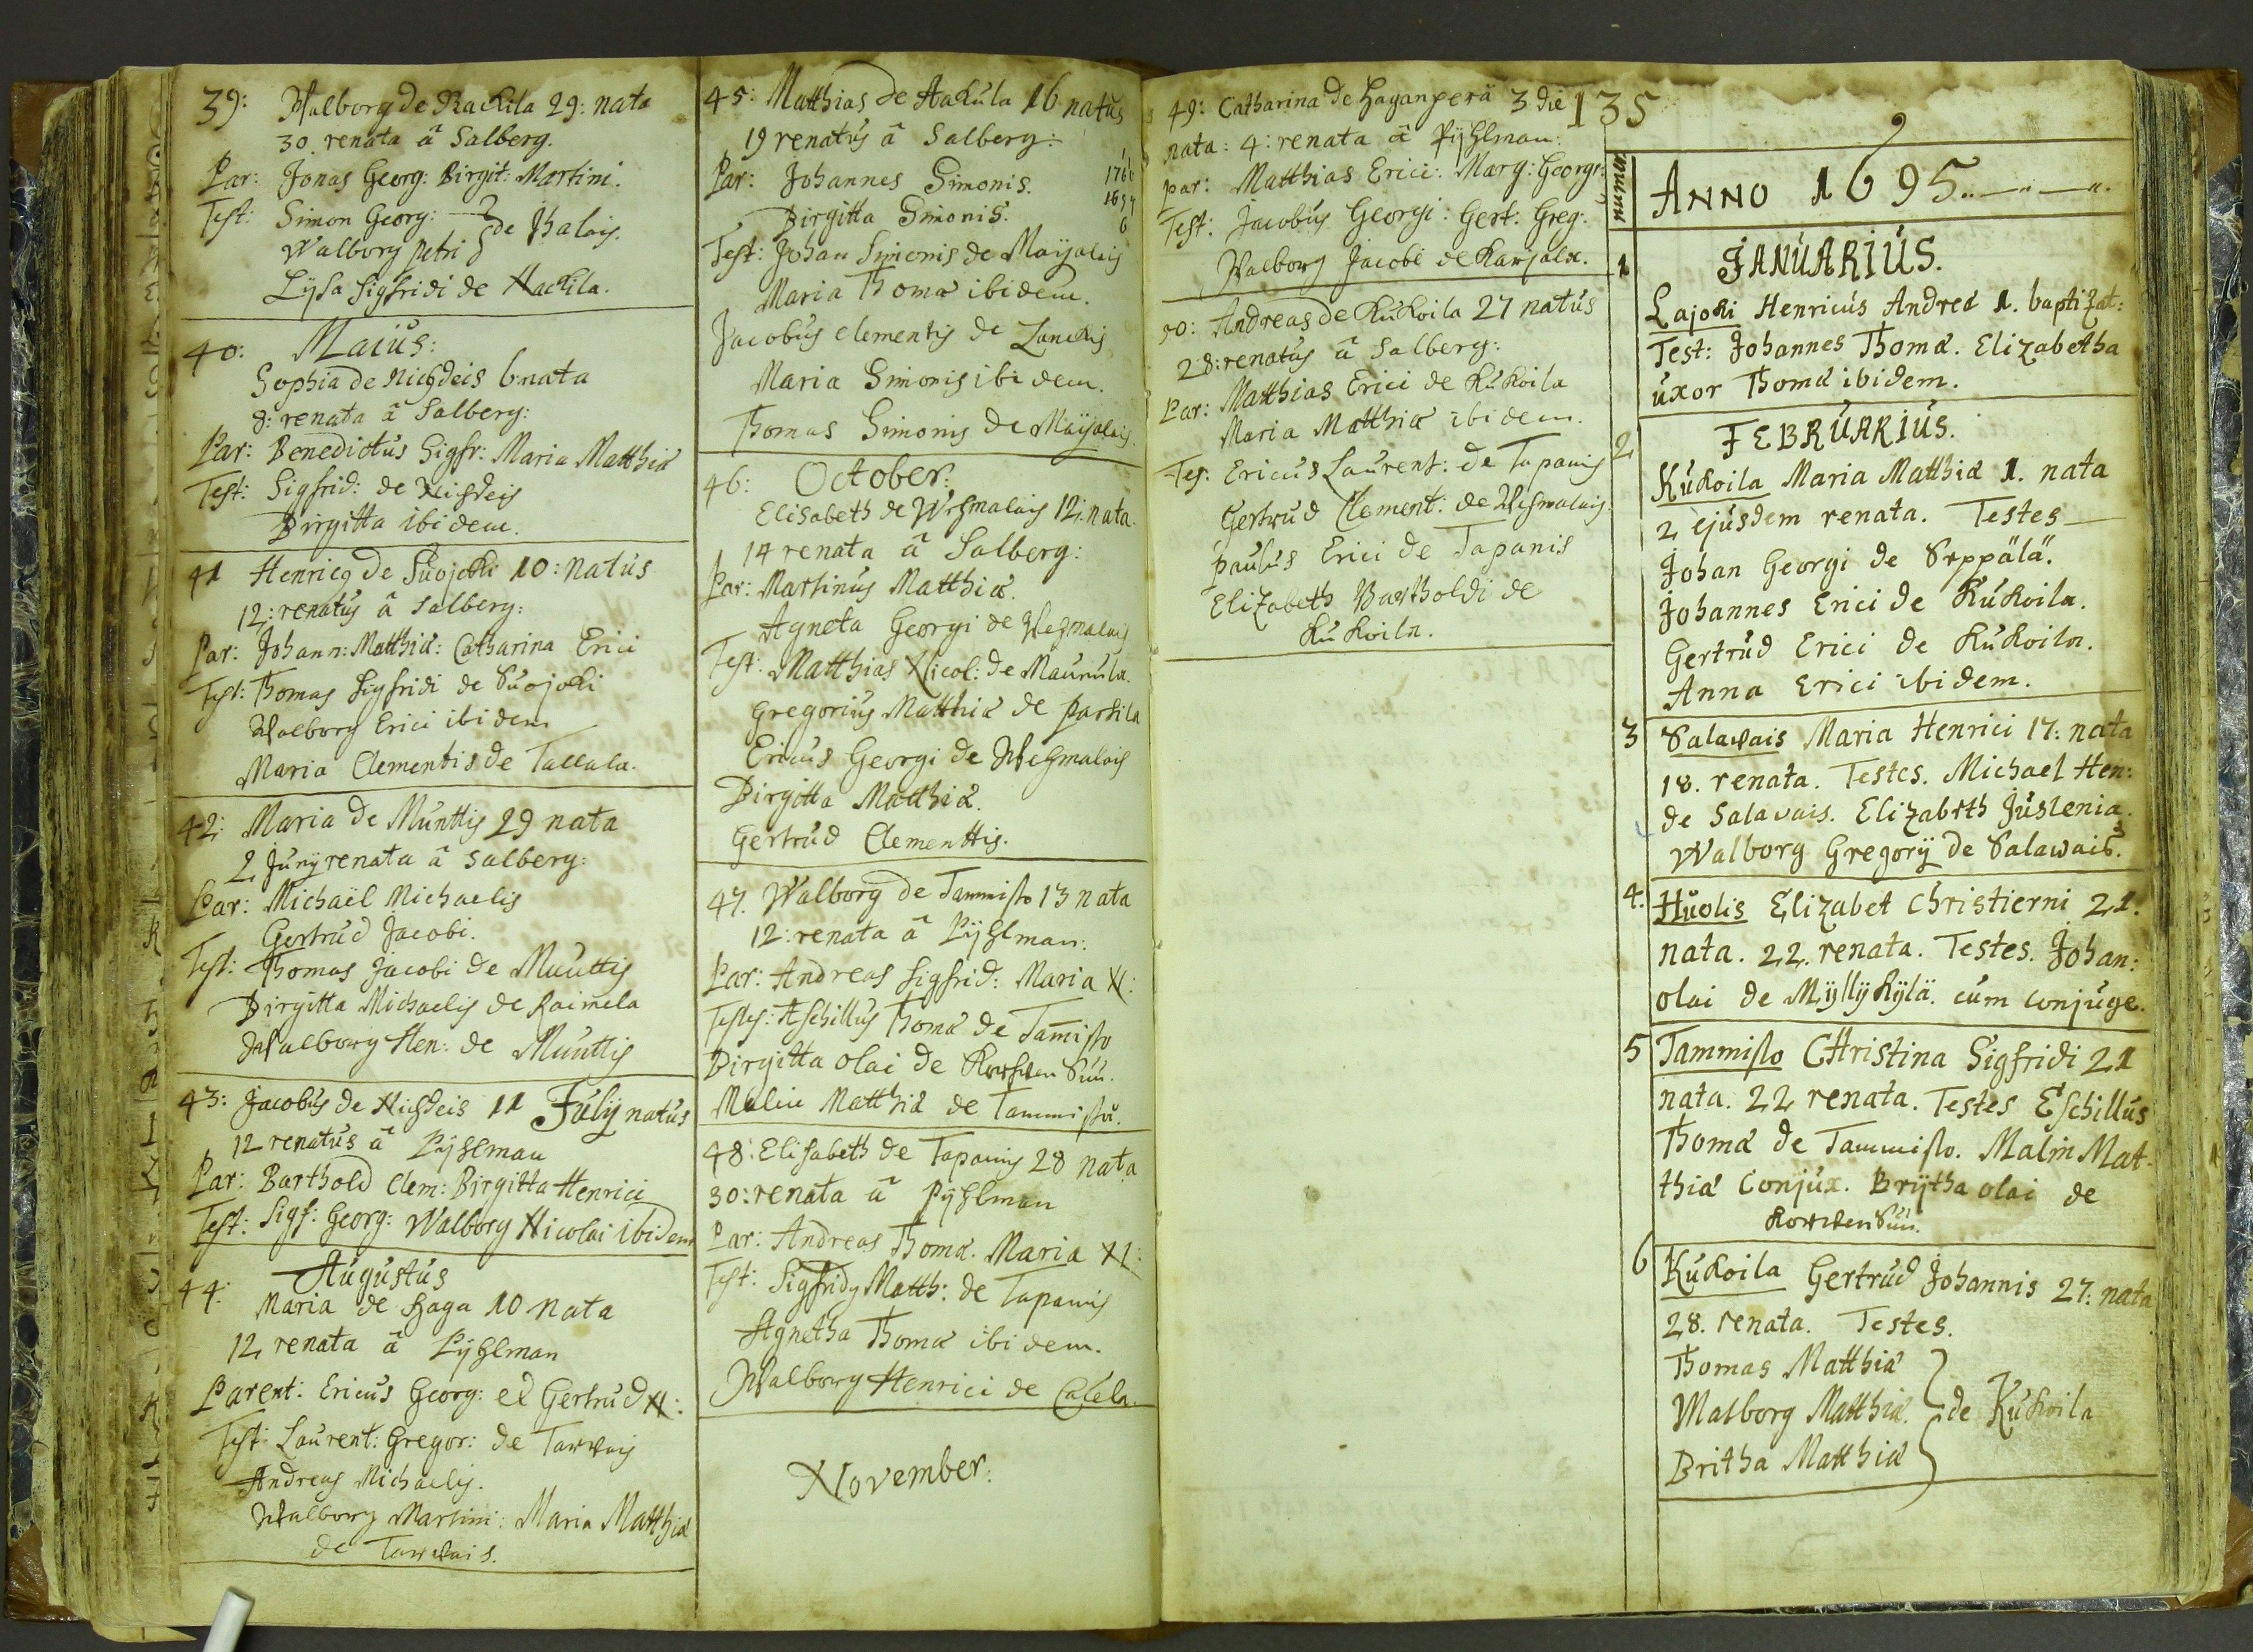 39: Walborg de Rackila 29: nata
30. renata â Salberg.
Par: Jonas Georg: Birgit: Martini.
Test: Simon Georg:
Walborg petri de Jhalais.
Lÿsa Sigfridi de Hackila.
40: Maius:
Sophia de Nichdeis 6: nata
8: renata â Salberg:
Par: Benedictus Sigfr: Maria Matthiæ
Test: Sigfrid: de Nichdeis
Birgitta ibidem.
41 Henricq de Suojoki 10: natus
12: renatus â Salberg:
Par: Johann: Matthiæ: Catharina Erici
Test: Thomas Sigfridi de Suojoki
Walborg Erici ibidem
Maria Clementis de Tallala.
42: Maria de Munttis 29 nata
2 Junÿ renata â Salberg:
Par: Michaël Michaelis
Gertrud Jacobi.
Test: Thomas Jacobi de Muuttis
Birgitta Michaelis de Raimela
Walborg Hen: de Muuttis
43: Jacobus de Nichdeis 11 Julÿ natus
12 renatus â Pÿhlman
Par: Barthold Clem: Birgitta Henrici
Test: Sigf: Georg: Walborg Nicolai ibidem
44: Augustus
Maria de Haga 10 nata
12 renata â Pÿhlman
Parent: Ericus Georg: et Gertrud N:
Test: Laurent: Gregor: de Tarvais
Andreas Michaelis.
Walborg Martini: Maria Matthiæ
de Tarvais.
45: Matthias de Hakula 16 natus
19 renatus â Salberg:
Par: Johannes Simonis.
Birgitta Simonis.
Test: Johan Simonis de Maÿalais
Maria Thomæ ibidem.
Jacobus Clementis de Lanckis
Maria Simonis ibidem.
Thomas Simonis de Maÿalais.
46: October:
Elisabeth de Wehmalais 12: nata.
14 renata â Salberg:
Par: Martinus Matthiæ.
Agneta Georgi de Wehmalais
Test: Matthias Nicol: de Maunula.
Gregorius Matthiæ de Partila
Ericus Georgi de Wehmalais
Birgitta Matthiæ.
Gertrud Clementtis.
47. Walborg de Tammisto 13 nata
12: renata â Pÿhlman:
Par: Andreas Sigfrid: Maria N:
Testes: Aschillus Thomæ de Tam̄isto
Birgitta Olai de Korwen Suu.
Malin Matthiæ de Tammisto.
48: Elisabeth de Tapanis 28 nata
30: renata â Pÿhlman
Par: Andreas Thomæ. Maria N:
Test: Sigfridg Matth: de Tapanis
Agnetha Thomæ ibidem.
Walborg Henrici de Catela.
November.
49: Catharina de Haganperä 3 die
nata: 4: renata â Pÿhlman:
par: Matthias Erici: Marg: Georgi:
Test: Jacobus Georgi: Gert: Greg:
Walborg Jacobi de Karjala.
50: Andreas de Kukoila 27 natus
28: renatus â Salberg:
Par: Matthias Erici de Kukoila
Maria Matthiæ ibidem.
Tes: Ericus Laurent: de Tapanis
Gertrud Clement: de Wehmalais:
Paulus Erici de Tapanis
Elizabeth Bartholdi de
Kukoila.
135
numer.
ANNO 1695
JANUARIUS.
1 Lajoki Henricus Andreæ 1. baptizat:
Test: Johannes Thomæ. Elizabetha
uxor Thomæ ibidem.
FEBRUARIUS.
2 Kukoila Maria Matthiæ 1. nata
2 ejusdem renata. Testes
Johan Georgi de Seppälä.
Johannes Erici de Kukoila.
Gertrud Erici de Kukoila.
Anna Erici ibidem.
3 Salawais Maria Henrici 17: nata
18. renata. Testes. Michael Hen:
de Salavais. Elizabeth Juslenia.
Walborg Gregorÿ de Salawais.
4. Huolis Elizabet Christierni 21.
nata. 22. renata. Testes. Johan:
Olai de Mÿllÿkÿlä. cum conjuge.
5 Tammisto CHristina Sigfridi 21
nata. 22 renata. Testes Eschillus
Thomæ de Tammisto. Malin Mat-
thiæ Conjux. Brÿtha Olai de
Korwen Suu.
6 Kukoila Gertrud Johannis 27: nata
28. renata. Testes.
Thomas Matthiæ
Walborg Matthiæ. de Kukoila
Britha Matthiæ